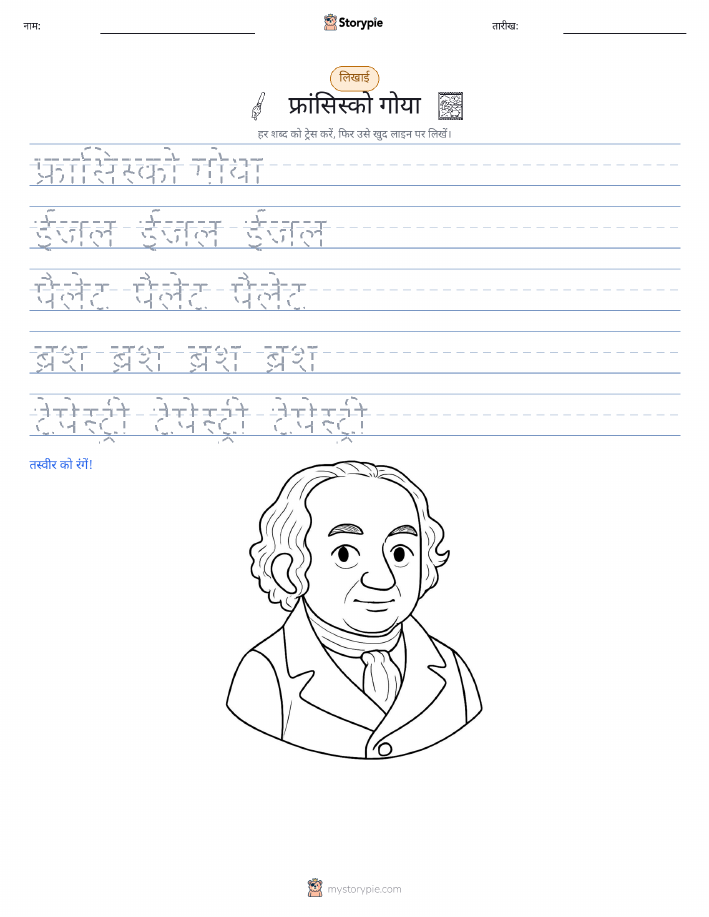 नाम:
Storypie
तारीख:
लिखाई
फ्रांसिस्को गोया
हर शब्द को ट्रेस करें, फिर उसे खुद लाइन पर लिखें।
फ्रांसिस्को गोया
ईजल ईजल ईजल
पैलेट पैलेट पैलेट
ब्रश ब्रश ब्रश ब्रश
टेपेस्ट्री टेपेस्ट्री टेपेस्ट्री
तस्वीर को रंगें!
mystorypie.com